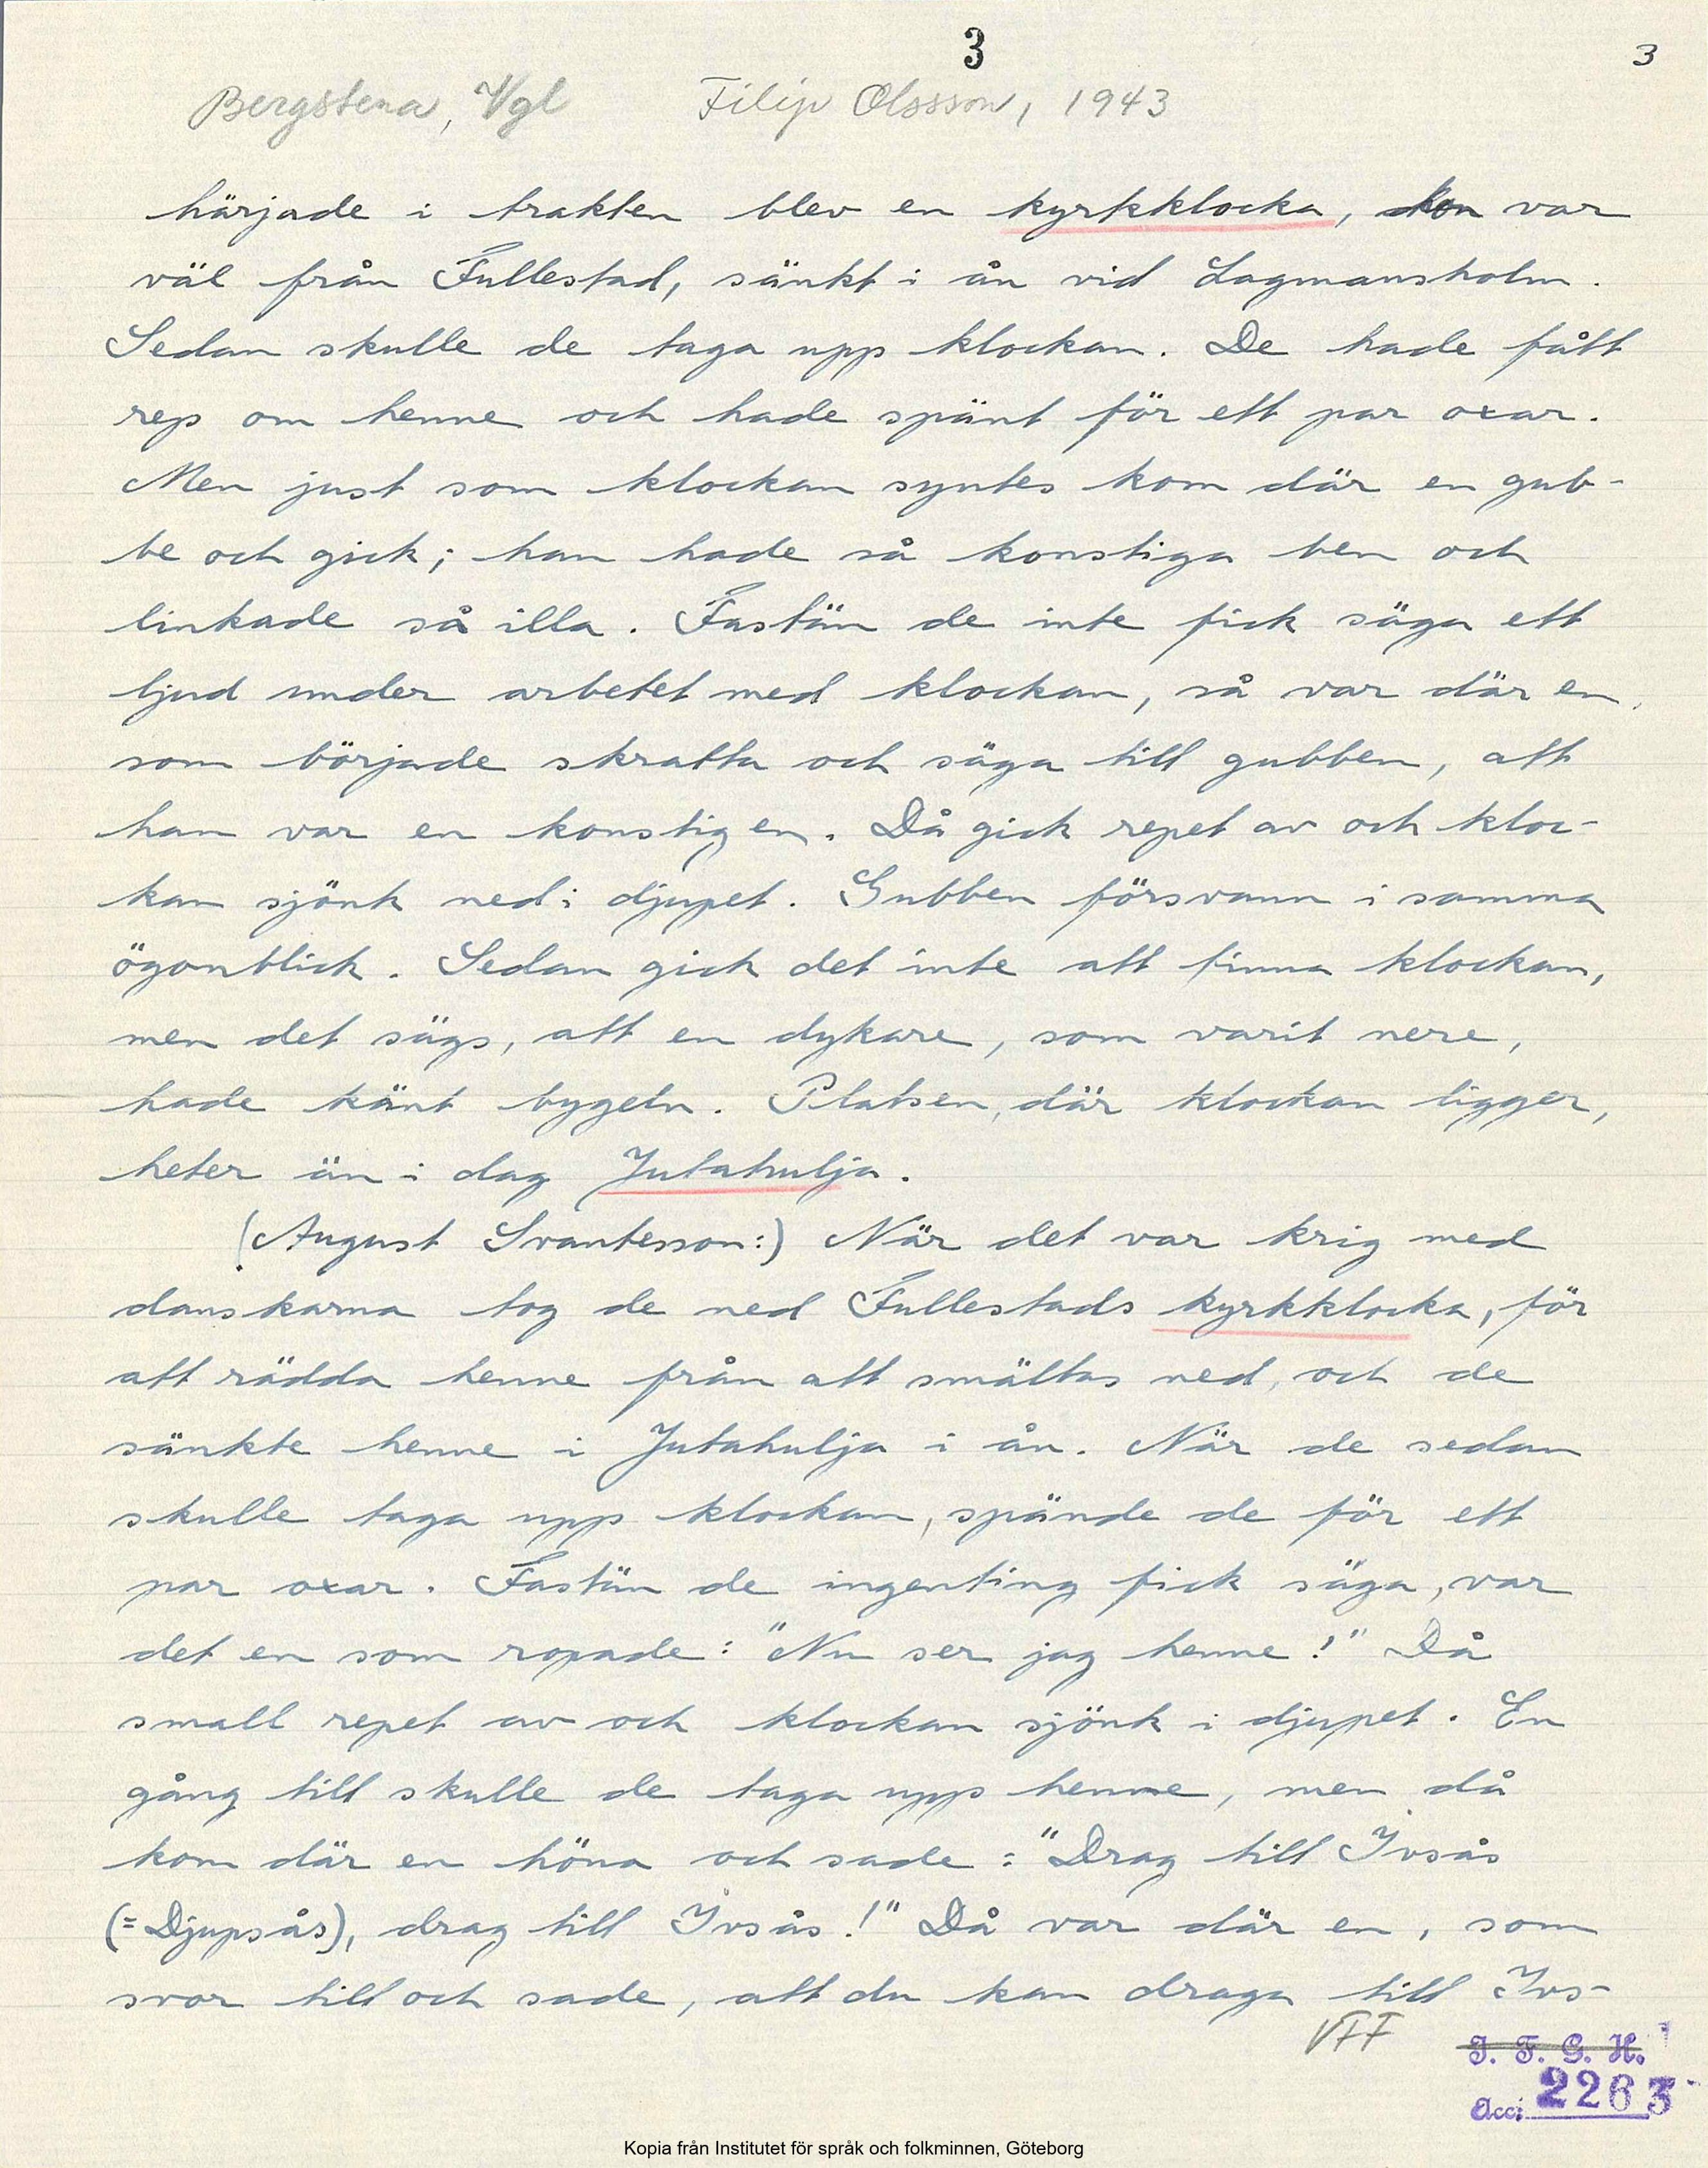 3
3
Bergstena, Vgl Filip Olsson, 1943
härjade i trakten blev en kyrkklocka, hon var
väl från Fullestad, sänkt i ån vid Lagmansholm.
Sedan skulle de taga upp klockan. De hade fått
rep om henne och hade spänt för ett par oxar.
Men just som klockan syntes kom där en gub-
be och gick; han hade så konstiga ben och
linkade så illa. Fastän de inte fick säga ett
ljud under arbetet med klockan, så var där en,
som började skratta och säga till gubben, att
han var en konstig en. Då gick repet av och kloc-
kan sjönk ned i djupet. Gubben försvann i samma
ögonblick. Sedan gick det inte att finna klockan,
men det sägs, att en dykare, som varit nere,
hade känt bygeln. Platsen, där klockan ligger,
heter än i dag Jutahulja.
(August Svantesson:) När det var krig med
danskarna tog de ned Fullestads kyrkklocka, för
att rädda henne från att smältas ned, och de
sänkte henne i Jutahulja i ån. När de sedan
skulle taga upp klockan, spände de för ett
par oxar. Fastän de ingenting fick säga, var
det en som ropade: "Nu ser jag henne!" Då
small repet av och klockan sjönk i djupet. En
gång till skulle de taga upp henne, men då
kom där en höna och sade: "Drag till Jvsås
(= Djupsås), drag till Jvsås!" Då var där en, som
svor till och sade, att du kan draga till Jvs-
VFF
I. F. G. H.
Acc: 2263
Kopia från Institutet för språk och folkminnen, Göteborg